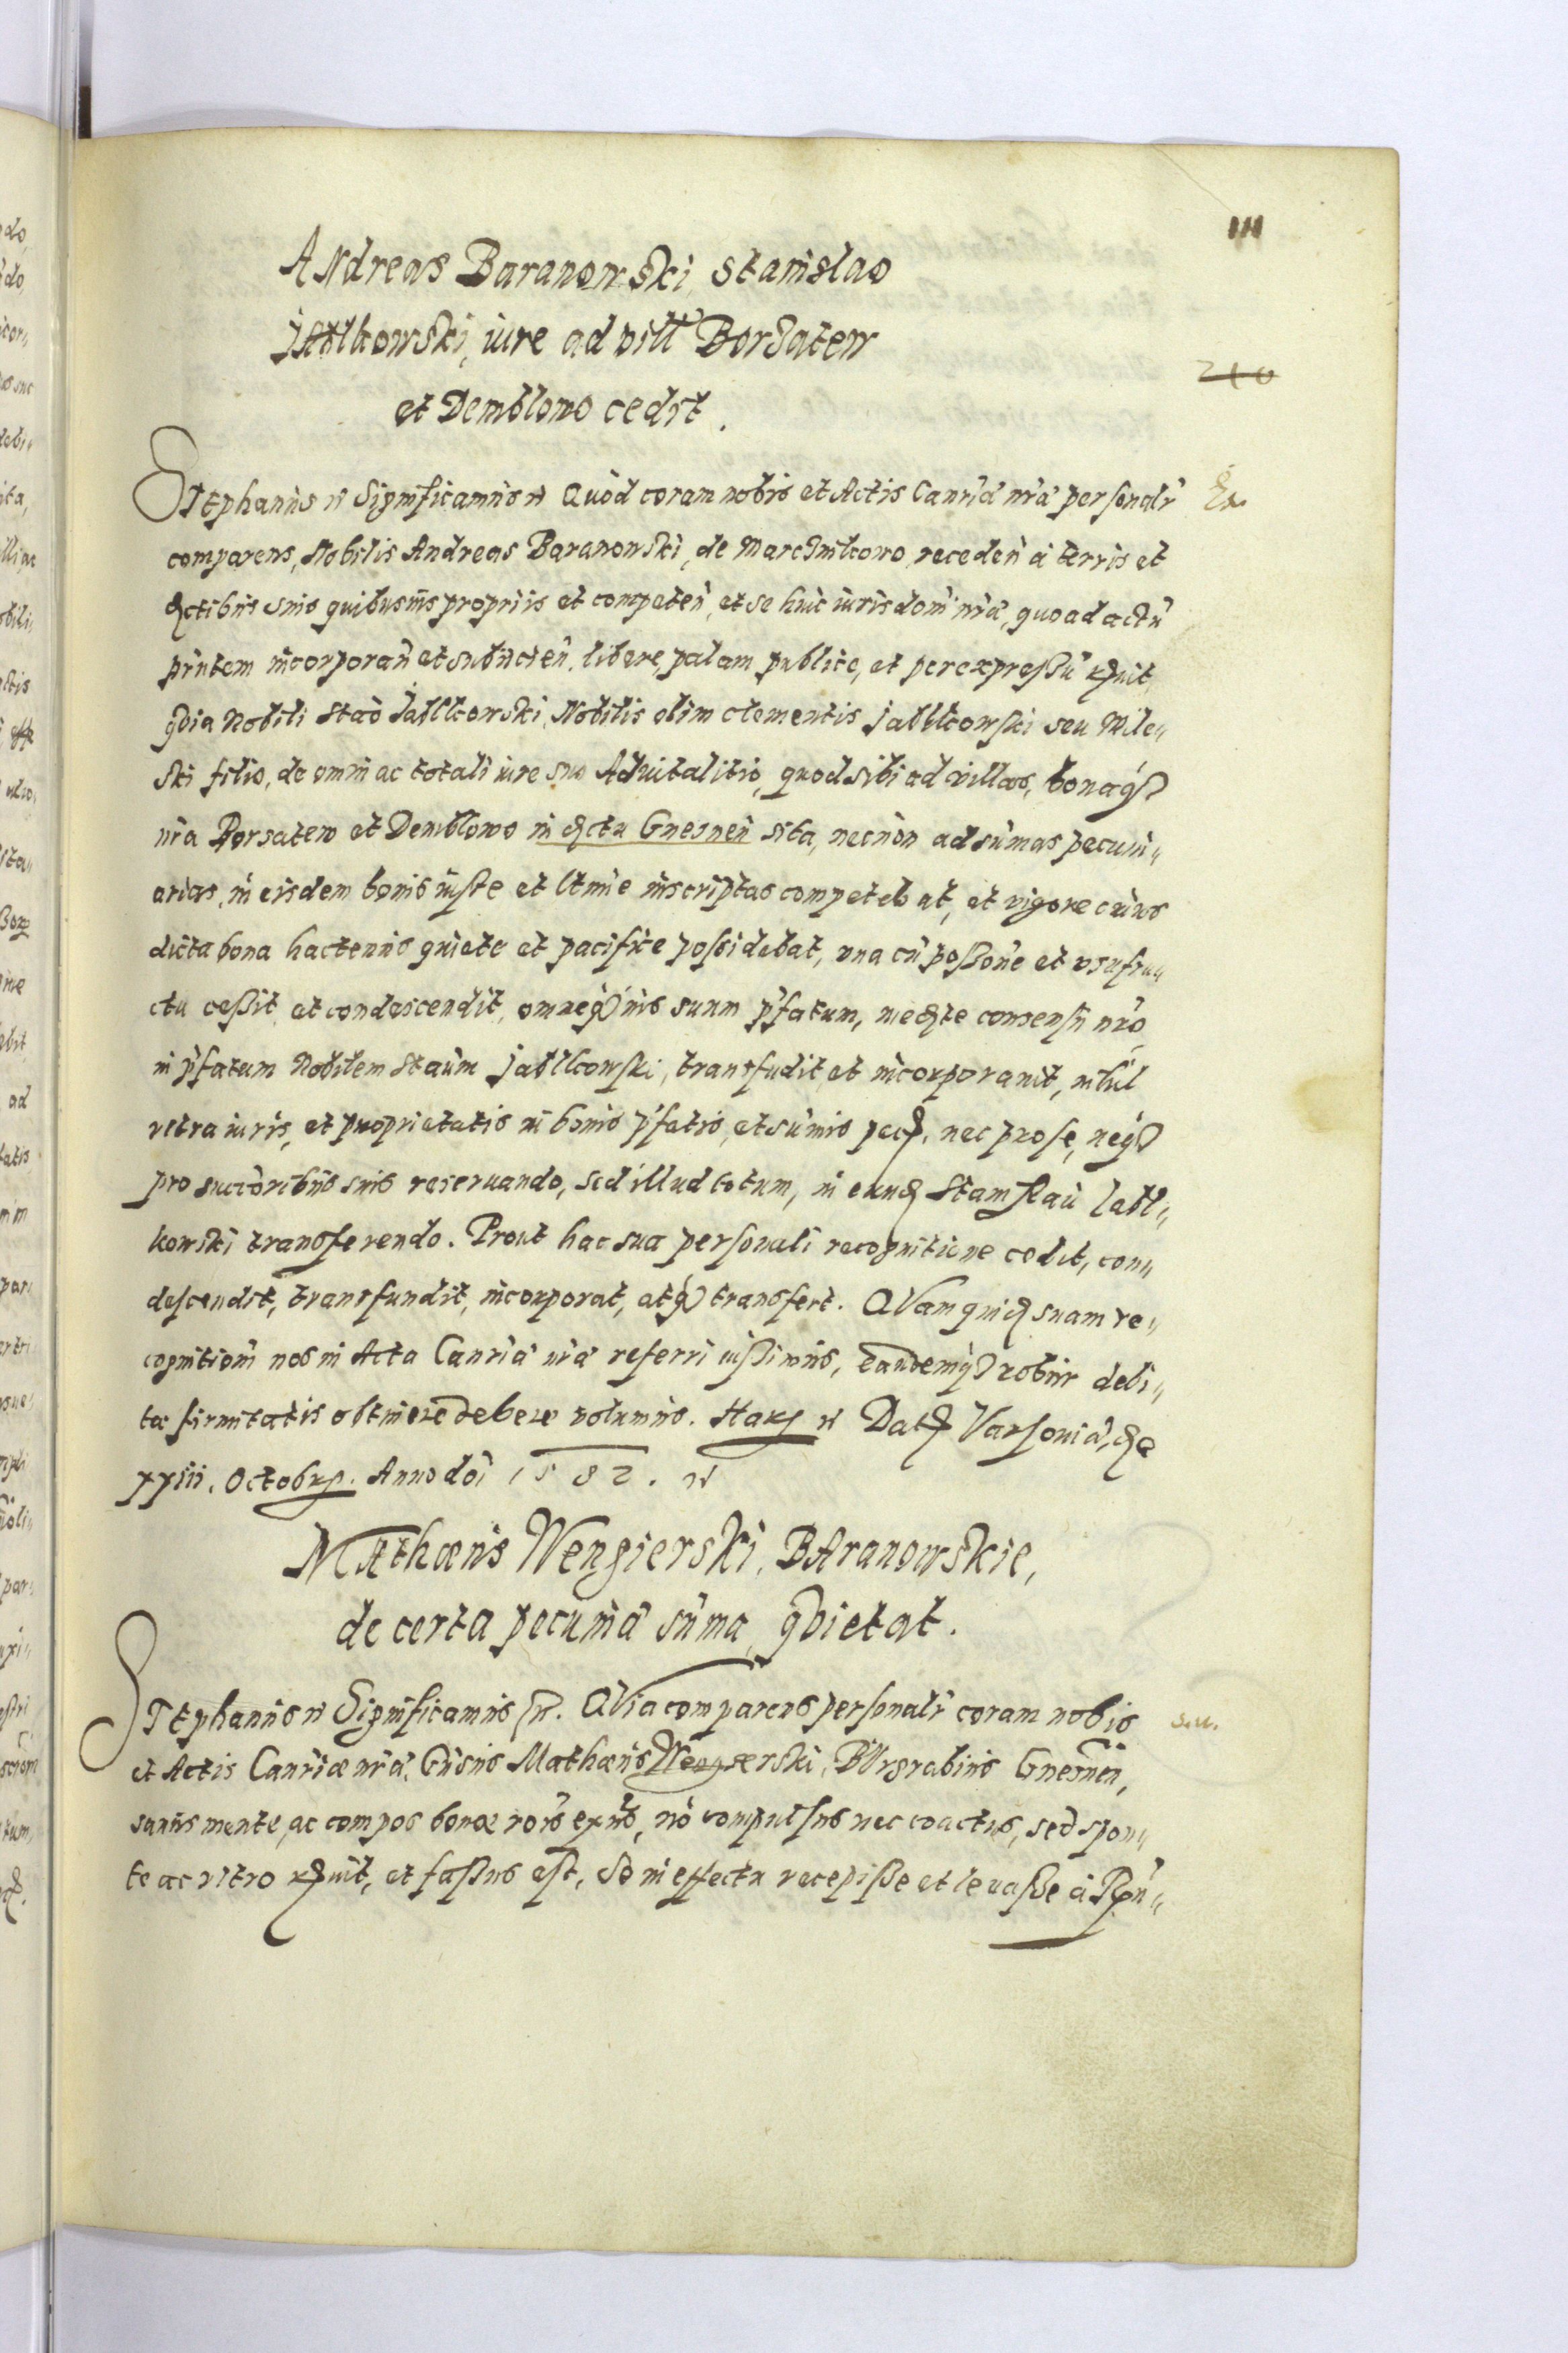 111
Andreas Baranowski, Stanislao
Jablkowski, iure ad vill Borzatew
et Demblowo cedit.
210
Stephanus Significamus Quod coram nobis et Actis Canriæ nræ personalr
comparens, Nobilis Andreas Baranowski, de Marcinkowo, receden à terris et
suis quibusuis propriis et competen, et se huic iurisdom nræ, quoad actu
prntem incorporan et subiicien, libere, palam, publice, et per expressu
quia Nobili Stao Jablkowski, Nobilis olim Clementis Jablkowski seu Mile„
ski filio, de omni ac totali iure suo Aduitalitio, quod sibi ad villas, bonaq
nra Borsatew et Demblowo in Gnesnen sita, necnon ad sumas pecuni„
arias, in eisdem bonis iuste et ltme inscriptas competebat, et vigore cuius
dicta bona hactenus quiete et pacifice possidebat, vna cu possone et vsufru„
ctu cessit et condescendit, omneq ius suum pfatum, consensu nro,
in pfatum Nobilem Staum Jablkowski, transfudit et incorporauit, nihil
vltra iuris, et proprietatis in bonis pfatis, et sumis nec pro se, neq
pro succoribus suis reseruando, sed illud totum, in Stanislau Jabl„
kowski transferendo. Prout hac sua personali recognitione cedit, con„
descendit, transfundit, incorporat, atq transfert. Quam suam re„
cognitiom nos in Acta Canriæ nræ referri iussimus, eandemq robur debi„
tæ firmitatis obtinere debere volumus. Varsouiæ, die
xxiii. Anno doi 1582.
Mathæus Wengierski, Baranowskie,
de certa pecuniæ suma, quietat.
Stephanus Significamus Quia comparens personalr coram nobis
et Actis Canriæ nræ, Mathæus Wengierski, Burgrabius Gnesnen,
sanus mente, ac compos bonæ rois no compulsus nec coactus, sed spon„
te ac vltro et fassus est, se in effectu recepisse et leuasse à